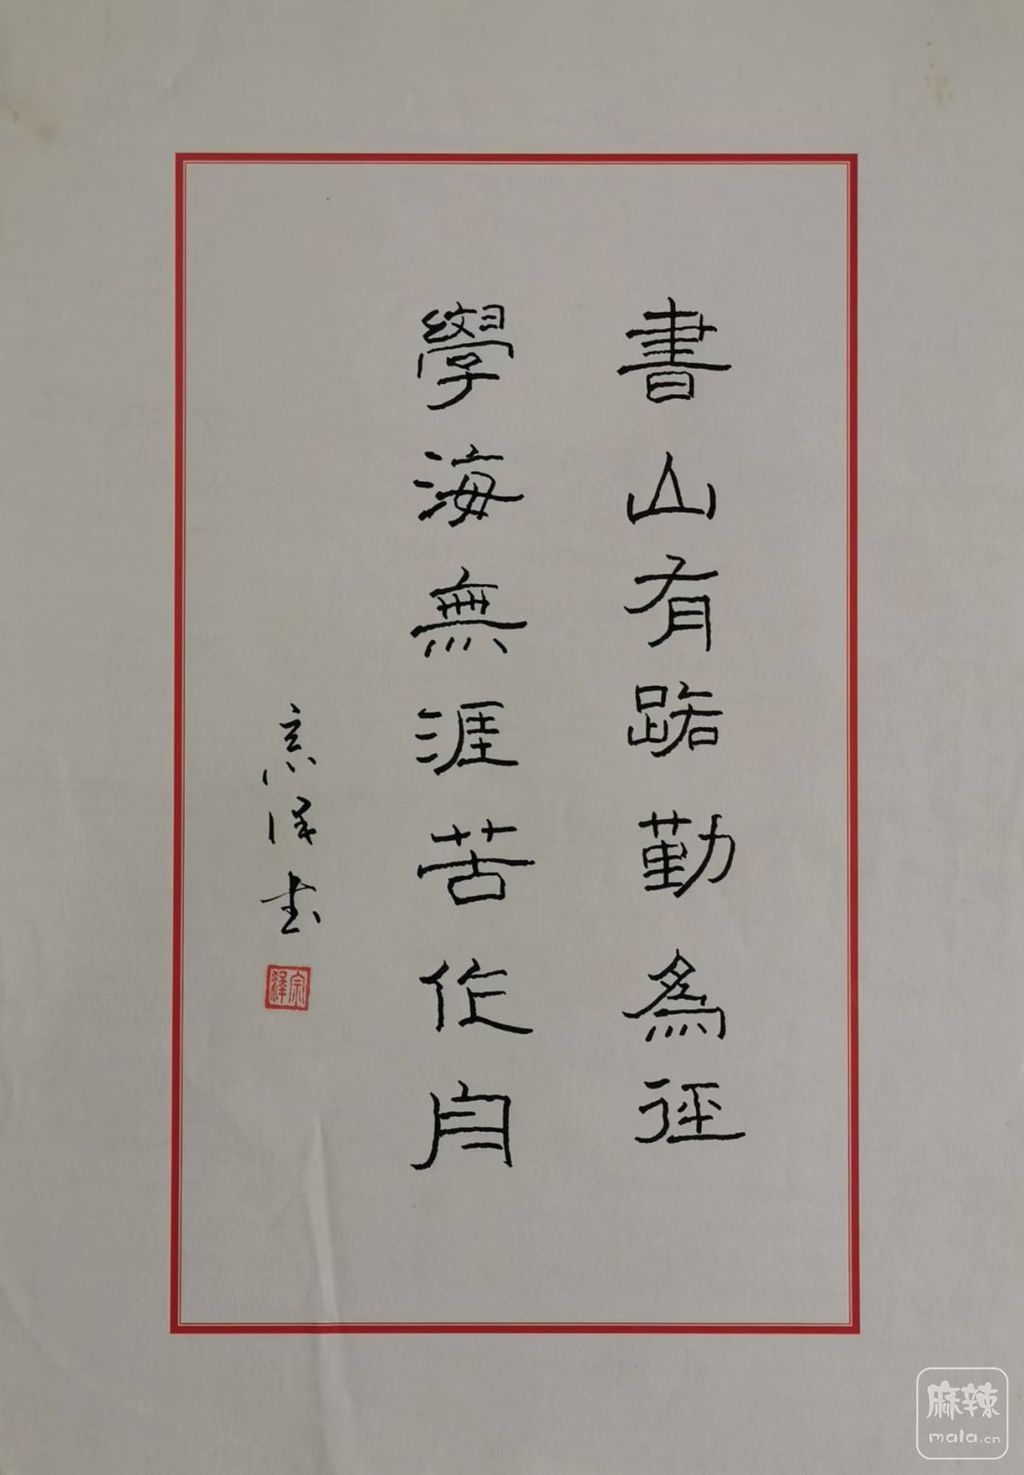 書山有路勤為徑
學海無涯苦作舟
宗澤书
宗澤
麻辣
mala.cn